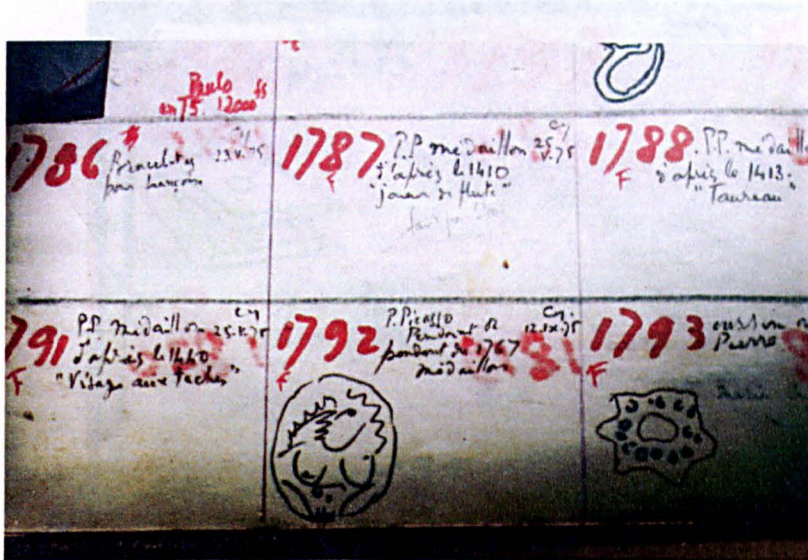 Paulo
en 75. 12000 fs
1786
Bracelet
23.V.75
pour
1787
P.P médaillon 25.V.75
d'après le 1410
"joueur de flute"
F
1788. P.P. médaill
d'après le 1413.
"Taureau"
F
791
P.P. médaillon 25.V.75
d'après le 1440
"Visage aux taches"
F
1792
P.Picasso
12.IX.75
pendant de 1767
médaillon
F
1793
oursin
Pierre
F